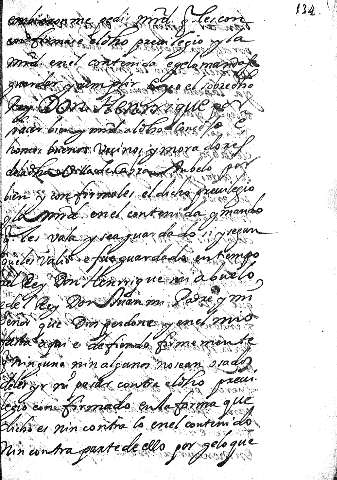 134
me pedi mrd q les con
confirmase el dho previlegio y la
mrd en el contenida e gela mandase
guardar y cumplir e yo el sobredho
Rey Don Henrrique por
hacer bien y mrd al dho Concejo
homes buenos Vecinos y moradores
de la dha Villa de tobelo por
bien y confirmoles el dicho previlegio
y la mrd en el contenida y mando
q les vala y sea guardado si y segun
que les valio e fue guardado en tiempo
del Rey Don Henrrique mi abuelo
y del Rey Don Juan mi Padre y mi
señor que Dios perdone y en el mio
fasta aqui e defiendo firmemente
ninguno nin algunos no sean osados
de les yr ni pasar contra el dho previ
legio confirmado en la forma que
dicho es nin contra lo en el contenido
nin contra parte de ello por gelo que